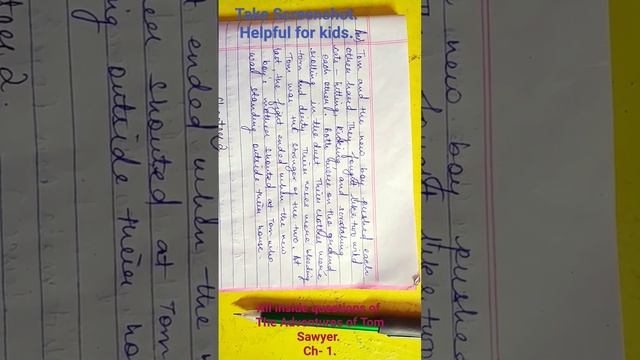 Take Screenshot.
Helpful for kids.
Tom and the new boy pushed each
other hard. They fought like two wild
cats hitting kicking and scratching
each other. Both were on the ground
rolling in the dust. Their clothes were
torn and dirty. Their noses were bleeding
Tom was the stronger of the two. At
last the fight ended when the new
boy's mother shouted at Tom who
was standing outside their house
All inside questions of
The Adventures of Tom
Sawyer.
Ch- 1.